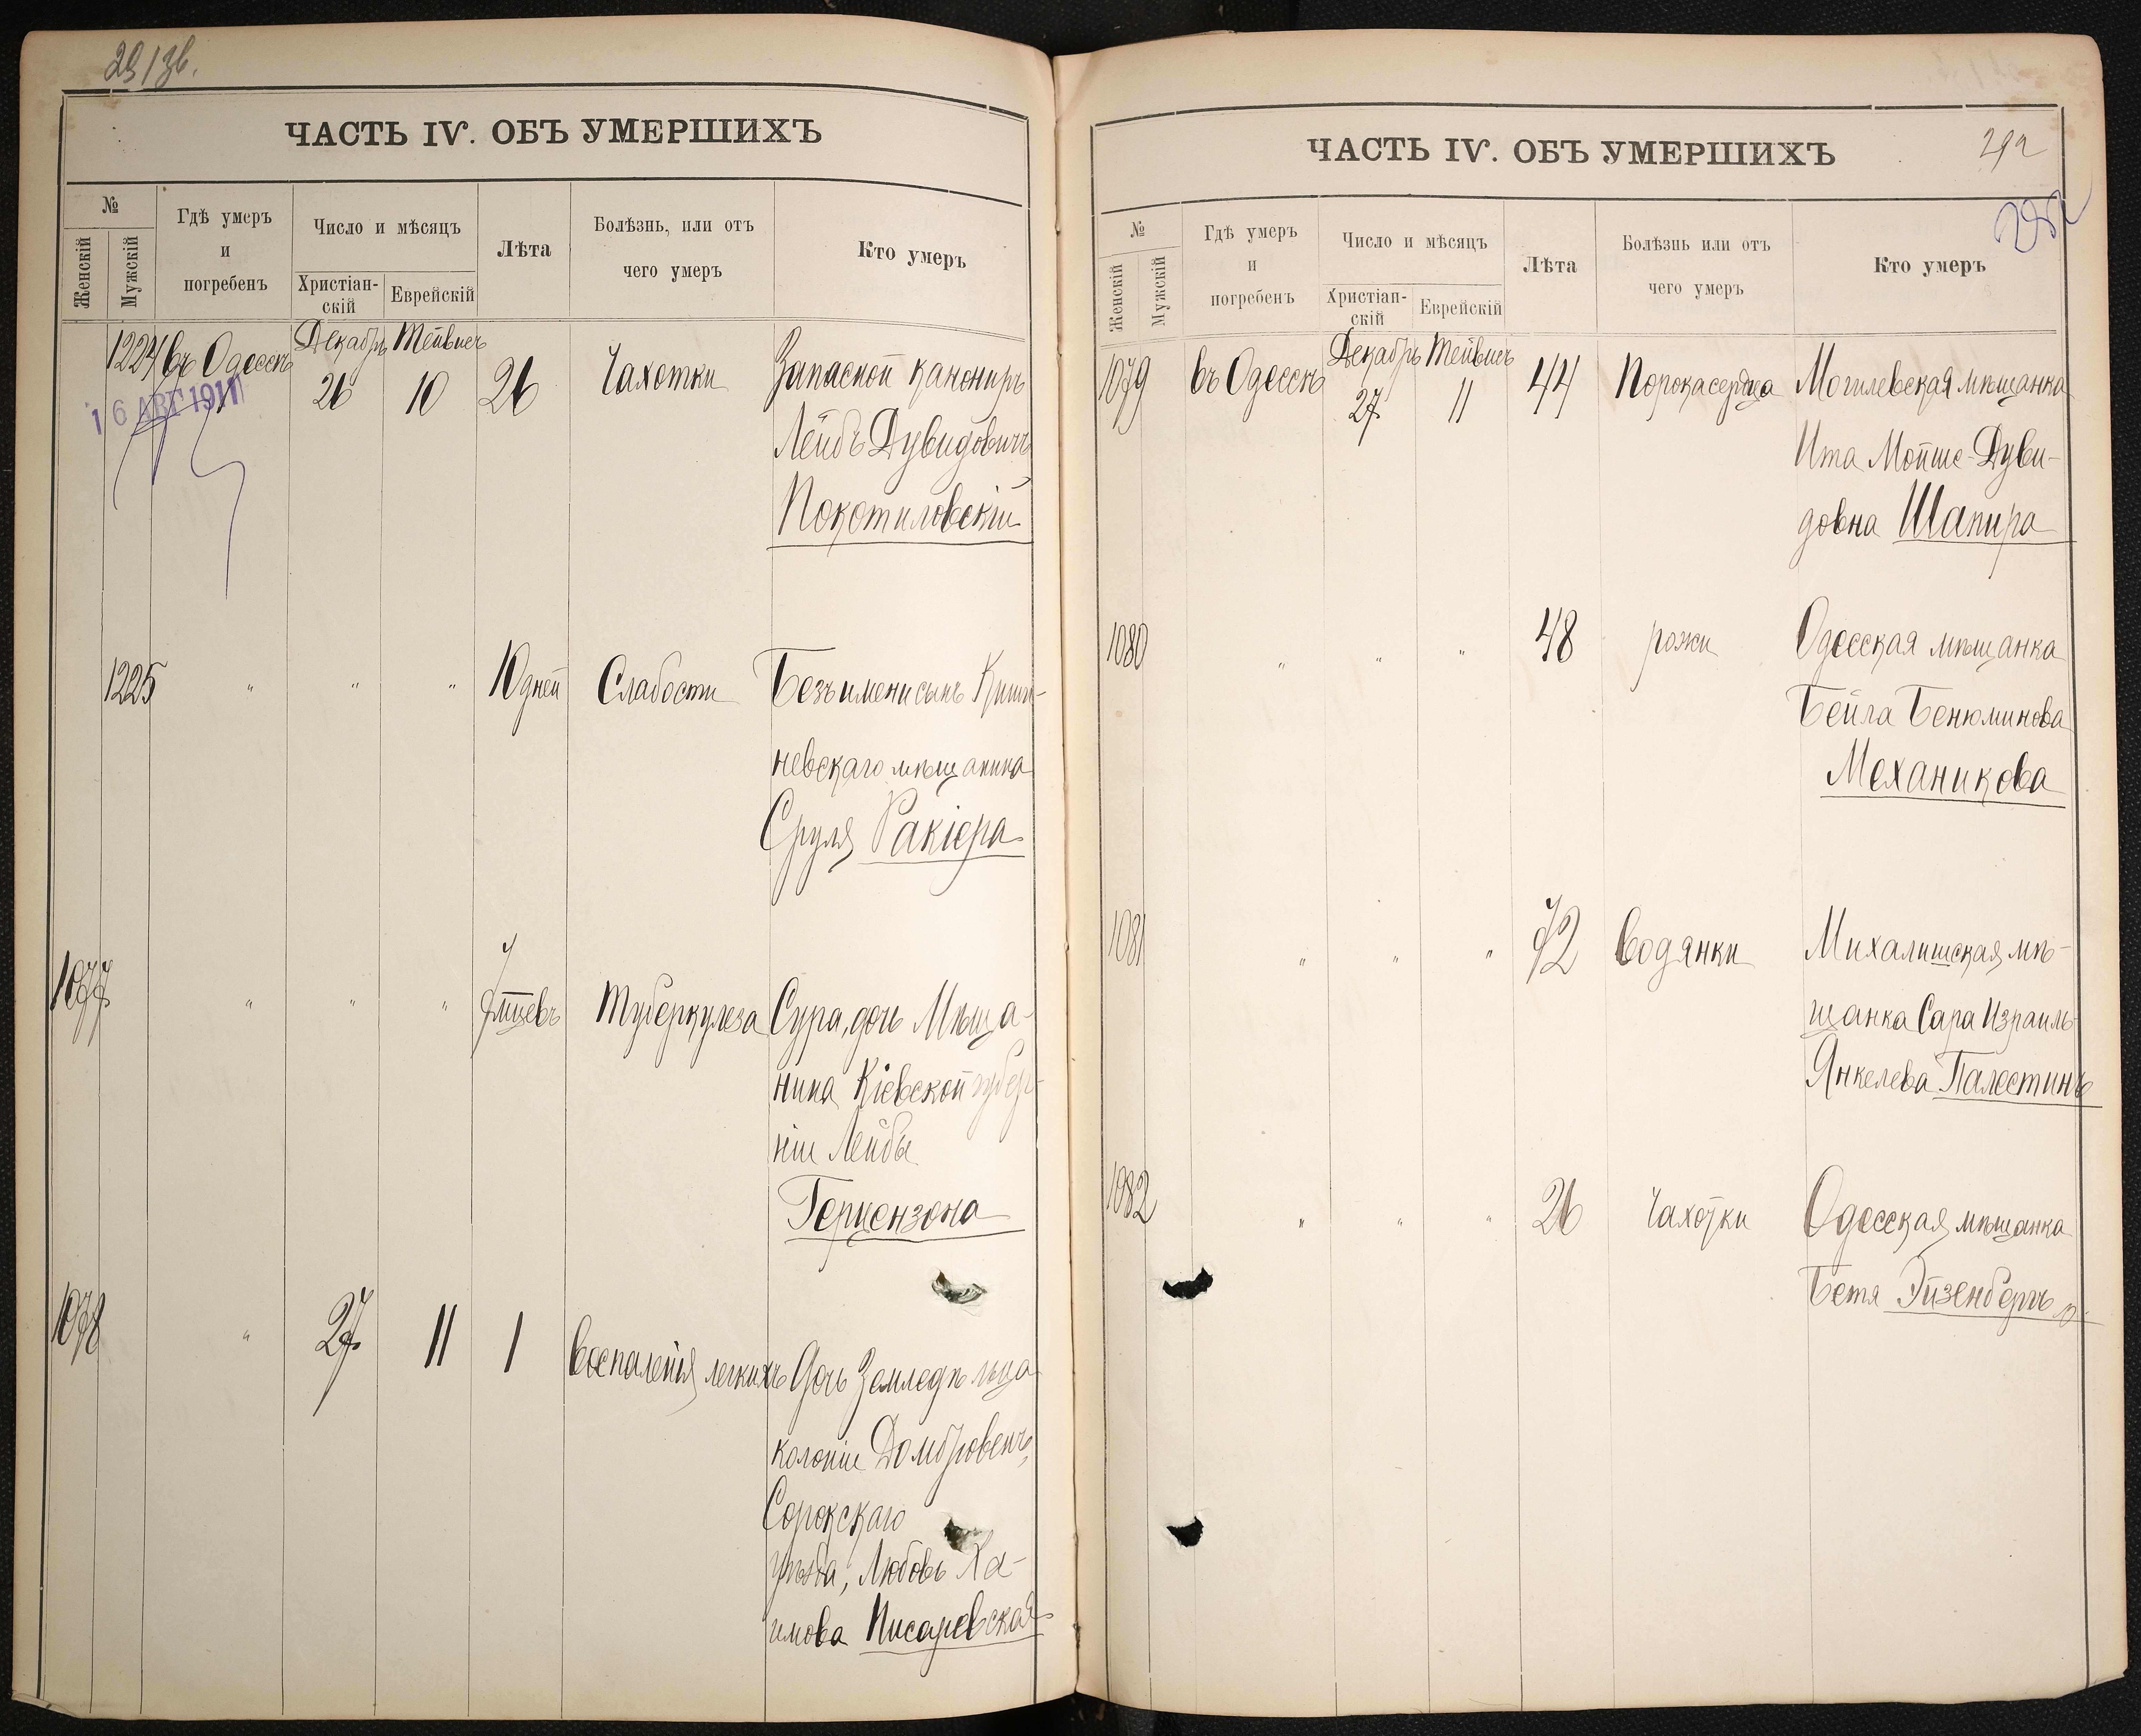 291зв.
ЧАСТЬ IV. ОБЪ УМЕРШИХЪ
№
Женскій
Мужскій
Гдѣ умеръ
и
погребенъ
Число и мѣсяцъ
Христіан-
скій
Еврейскій
Лѣта
Болѣзнь, или отъ
чего умеръ
Кто умеръ
1224 въ Одессѣ Декабрь 26 Тейвисъ 10 26 Чахотки Запасной канониръ
16 АВГ 1911
Лейбъ Дувидовичъ
Покотиловскій
1225 " " " 10 дней Слабости Безъ имени сынъ Киши-
невскаго мѣщанина
Сруля Ракіера
1077 " " " 7 мѣсцевъ Туберкулеза Сура, дочь Мѣща-
нина Кіевской губер-
ніи Лейбы
Герцензона
1078 " 27 11 1 Воспаленія легкихъ Дочь Земледѣльца
колоніи Домбровенъ,
Сорокскаго
уѣзда, Любовь Ха-
имова Писаревская
ЧАСТЬ IV. ОБЪ УМЕРШИХЪ
292
292
№
Женскій
Мужскій
Гдѣ умеръ
и
погребенъ
Число и мѣсяцъ
Христіан-
скій
Еврейскій
Лѣта
Болѣзнь или отъ
чего умеръ
Кто умеръ
1079 въ Одессѣ Декабрь 27 Тейвисъ 11 44 Порока сердца Могилевская мѣщанка
Ита Мойше-Дуви-
довна Шапира
1080 " " " 48 рожи Одесская мѣщанка
Бейла Бенюминова
Механикова
1081 " " " 72 Водянки Михалишская мѣ-
щанка Сара Израиль-
Янкелева Палестинъ
1082 " " " 26 Чахотки Одесская мѣщанка
Бетя Эйзенбергъ